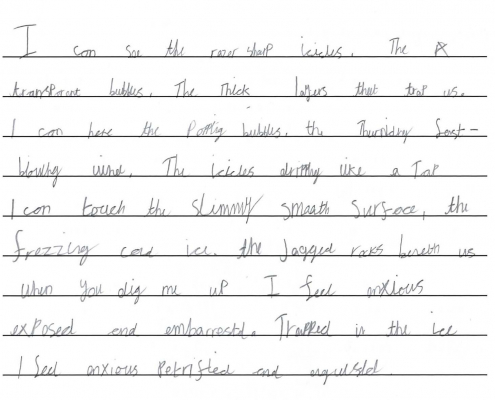 I can see the razor sharp icicles. The
transparent bubbles. The Thick layers that trap us.
I can here the Poppig bubbles, the Thurnidry fast-
blowing wind. The icicles dripping like a Tap
I can touch the slimmy smooth surface, the
frezzing cold ice. the Jagged rocks beneth us
when you dig me up I feel anxious
exposed and embarrestd. Trapped in the ice
I feel anxious petrified and